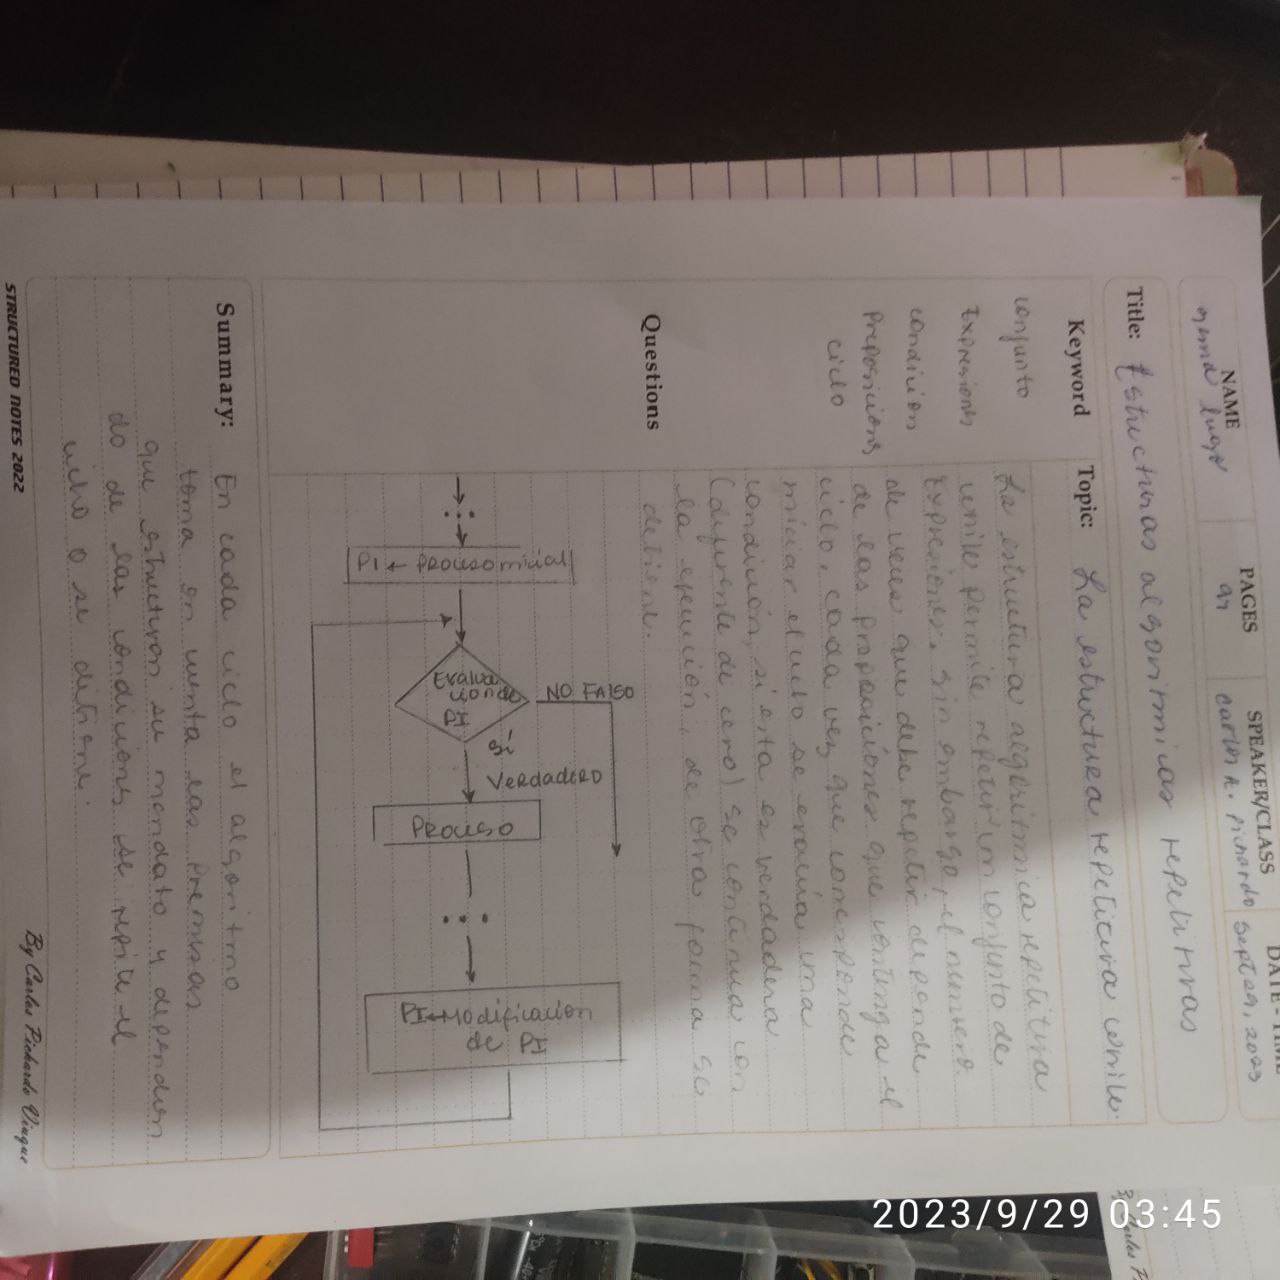 NAME
PAGES
SPEAKER/CLASS
DATE - TIME
lugo
91
Carlos A. Pichardo
Sept 29, 2023
Title: Estructuras algoritmicas repetitivas
Keyword
Topic: La estructura repetitiva while.
conjunto
Expresions
condicion
Preposicions
ciclo
La estructura algoritmica repetitiva
while permite repetir un conjunto de
Expresiones. Sin embargo, el numero
de veces que debe repetir depende
de las proposiciones que contenga el
ciclo. Cada vez que corresponde
iniciar el ciclo se evalúa una
condición, si esta es verdadera
(diferente de cero) se continua con
la ejecución, de otra forma se
detiene.
Questions
PI ← Proceso inicial
Evalua
cion de
PI
NO FALSO
si
VERDADERO
PROCESO
PI ← Modificacion
de PI
Summary: En cada ciclo el algoritmo
toma en cuenta las premisas
que estructuran su mandato y dependien
do de las condiciones se repite el
ciclo o se detiene.
STRUCTURED NOTES 2022
By Carlos Pichardo Viuque
2023/9/29 03:45